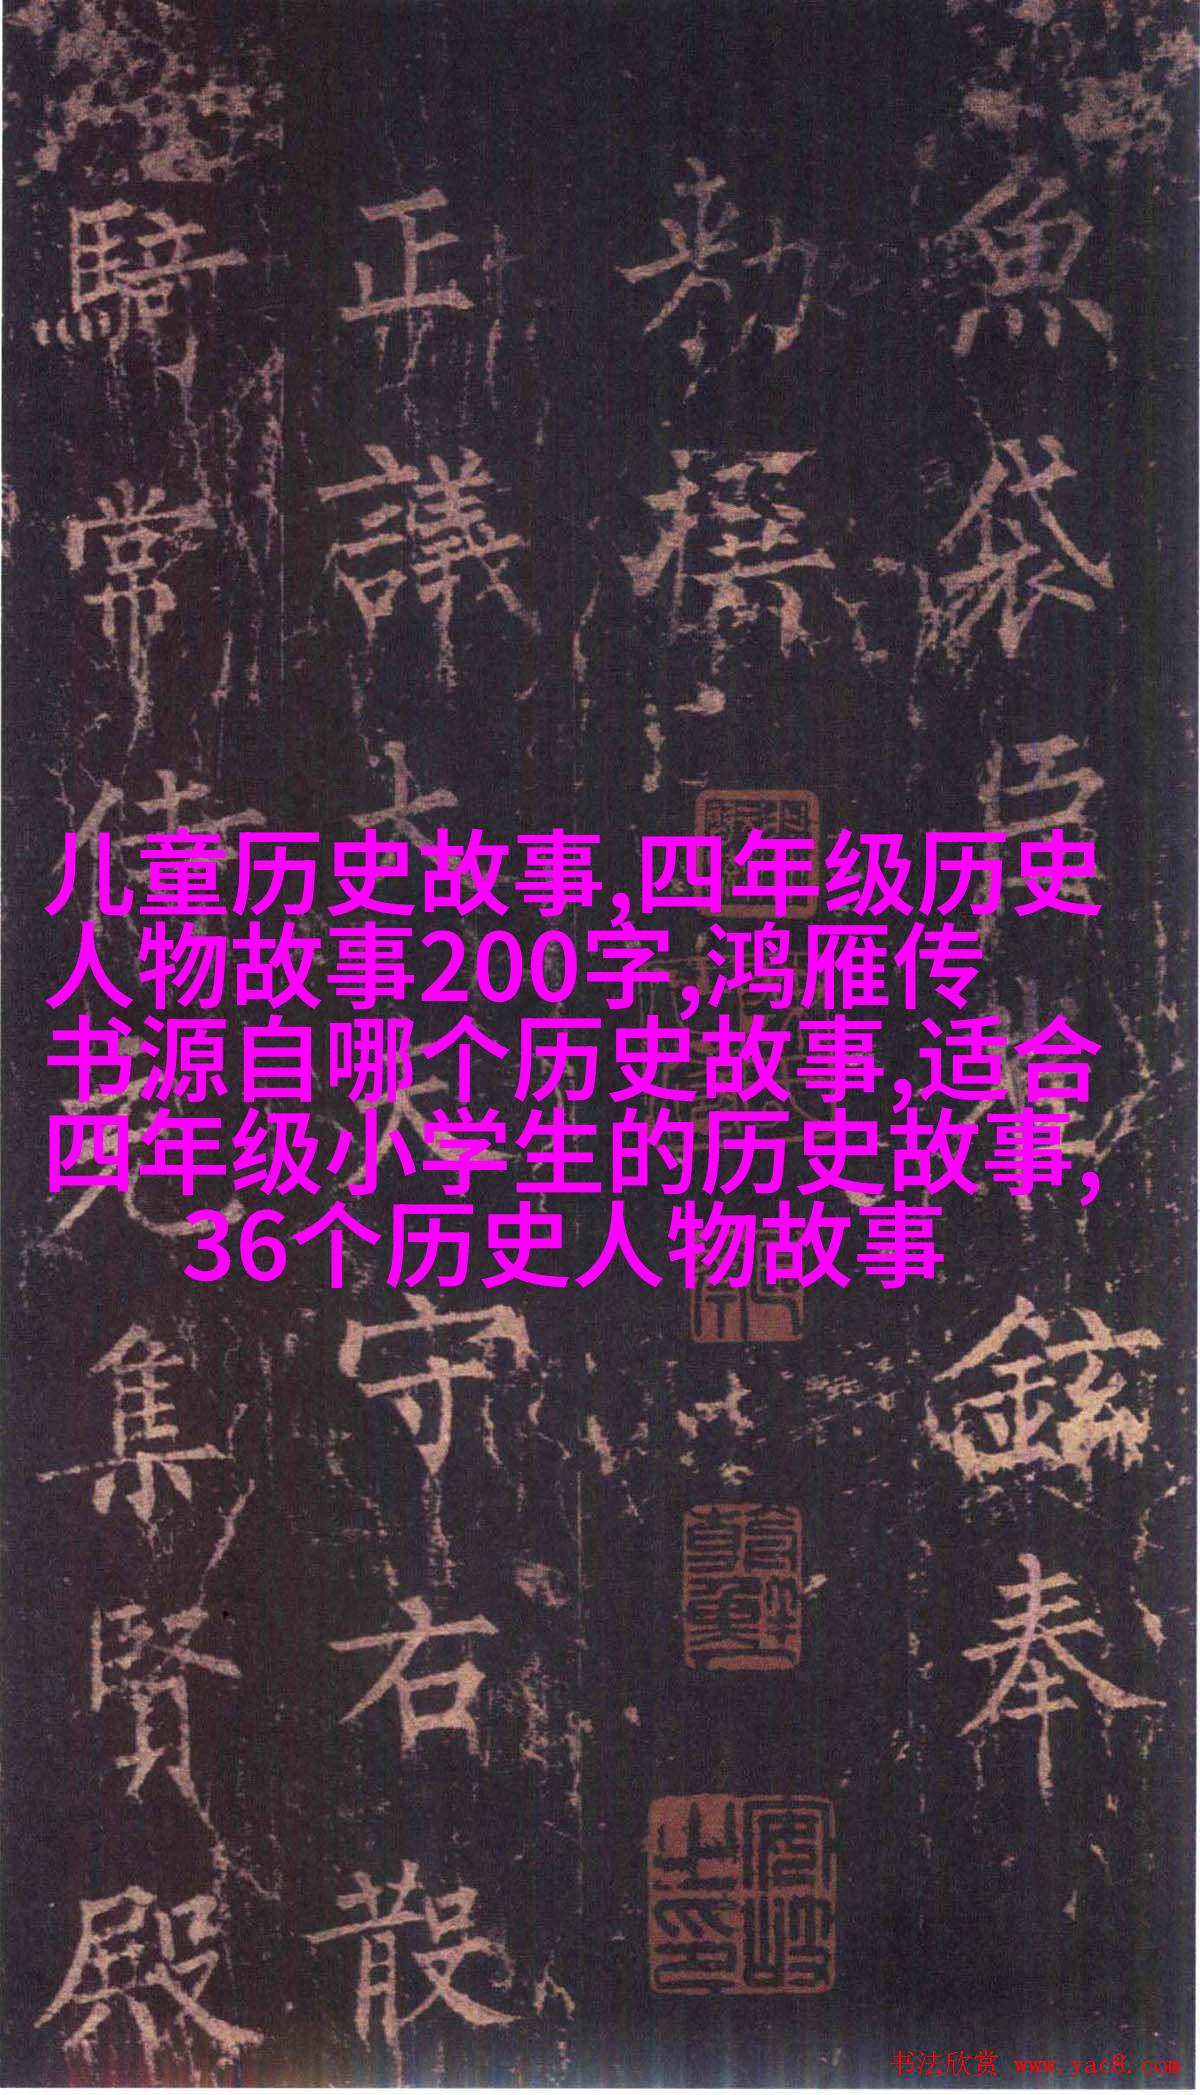 儿童历史故事,四年级历史
人物故事200字,鸿雁传
书源自哪个历史故事,适合
四年级小学生的历史故事,
36个历史人物故事
魚袋臣鉉奉
勅撰
正議大夫守右散
騎常侍充集賢殿
书法欣赏 www.yac8.com